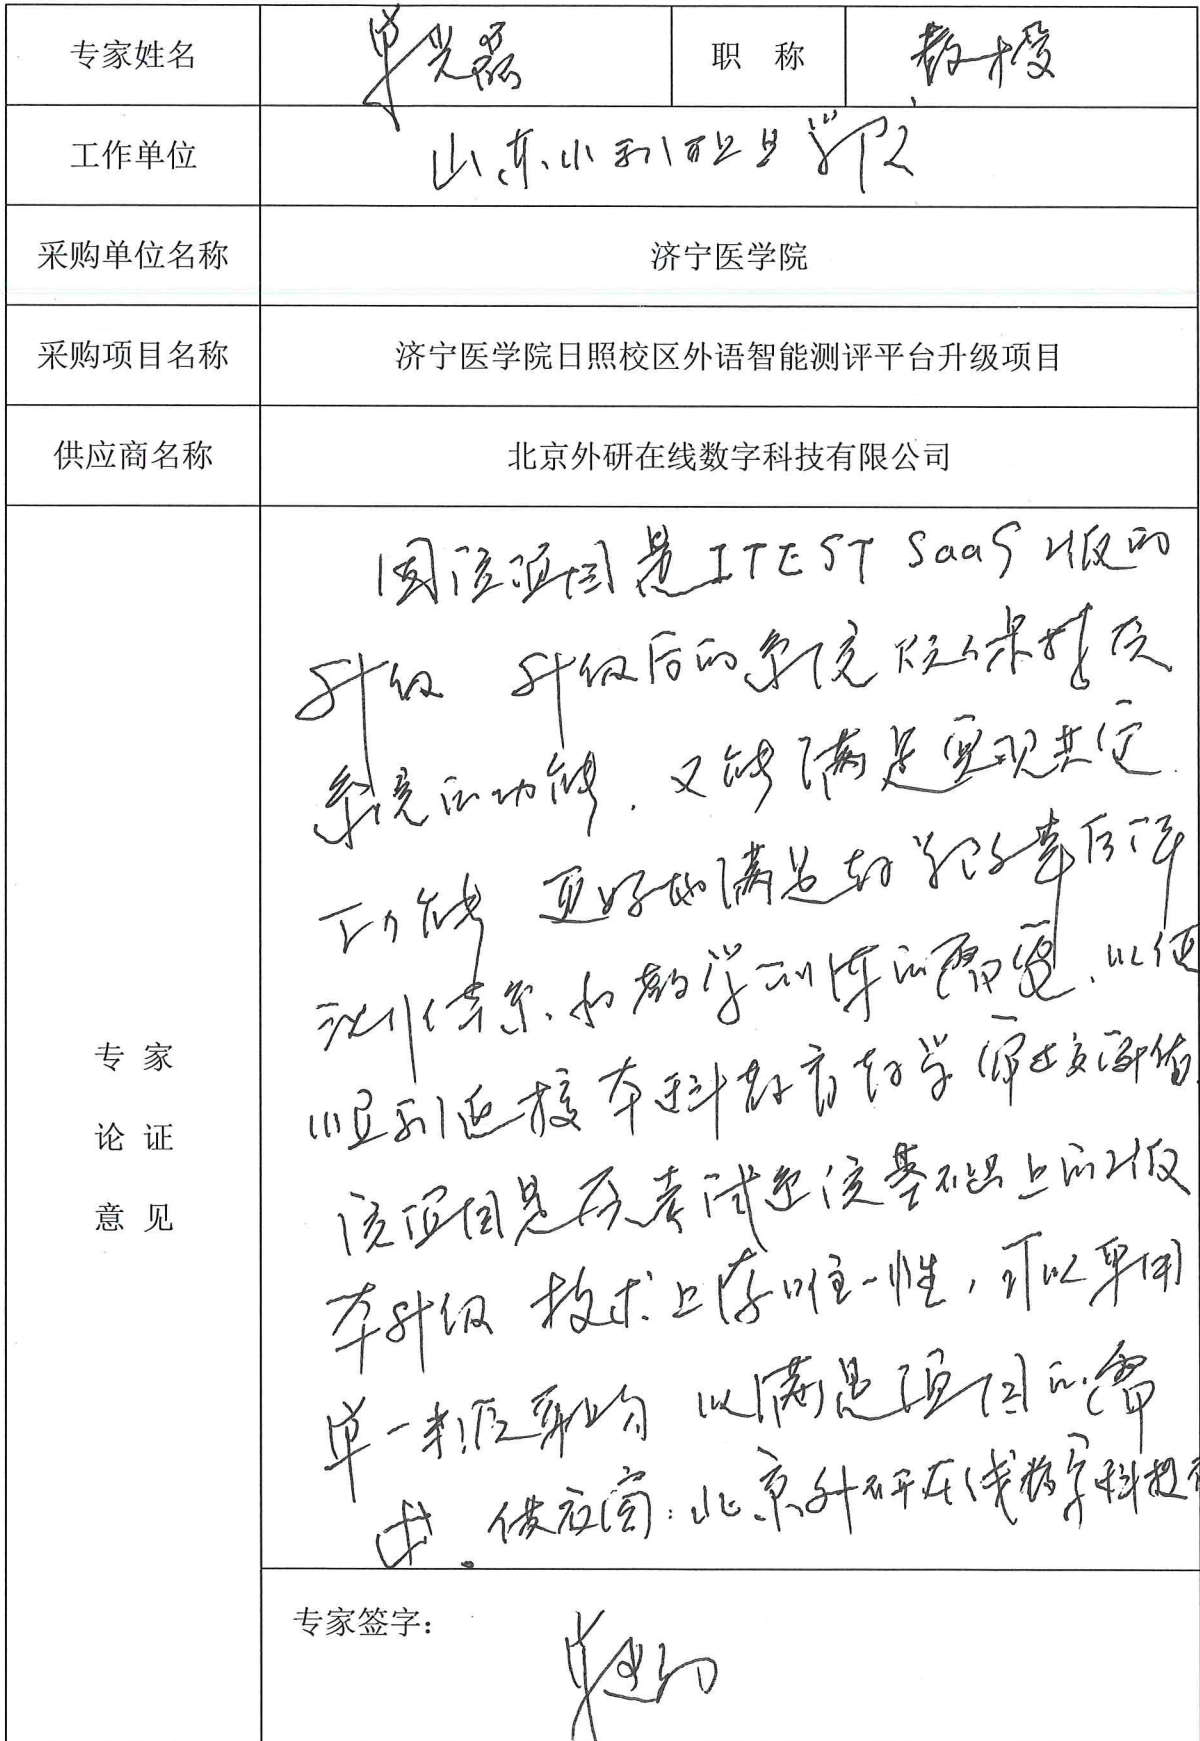 专家姓名 单光磊 职 称 教授
工作单位 山东水利职业学院
采购单位名称 济宁医学院
采购项目名称 济宁医学院日照校区外语智能测评平台升级项目
供应商名称 北京外研在线数字科技有限公司
专 家
论 证
意 见
因该项目是ITEST SaaS版的
升级 升级后的系统 既保持原
系统的功能，又能满足实现其它
功能 更好地满足教学改革后评
测体系和教学训练的需要，以便
顺利迎接本科教育教学审核评估
该项目是原考试系统基础上的版
本升级 技术上存唯一性，可以采用
单一来源采购 以满足项目的需
求。供应商：北京外研在线数字科技
专家签字：